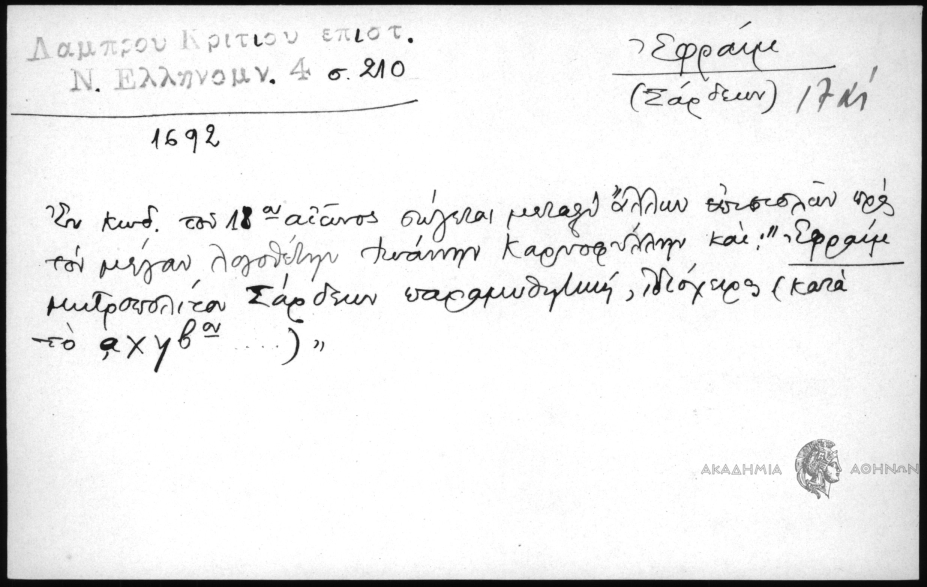 Λαμπρου Κριτιου επιστ.
Ν. Ελληνομν. 4 σ. 210
Ἐφραὶμ
(Σάρδεων) 17 αἰ
1692
Ἐν κωδ. τοῦ 18ου αἰῶνος σώζεται μεταξὺ ἄλλων ἐπιστολῶν πρὸς
τὸν μέγαν λογοθέτην Ἰωάννην Καρυοφύλλην καὶ: "Ἐφραὶμ
μητροπολίτου Σάρδεων παραμυθητική, ἰδιόχειρος (κατὰ
τὸ ͵αχϟβον ....) "
ΑΚΑΔΗΜΙΑ ΑΘΗΝΩΝ